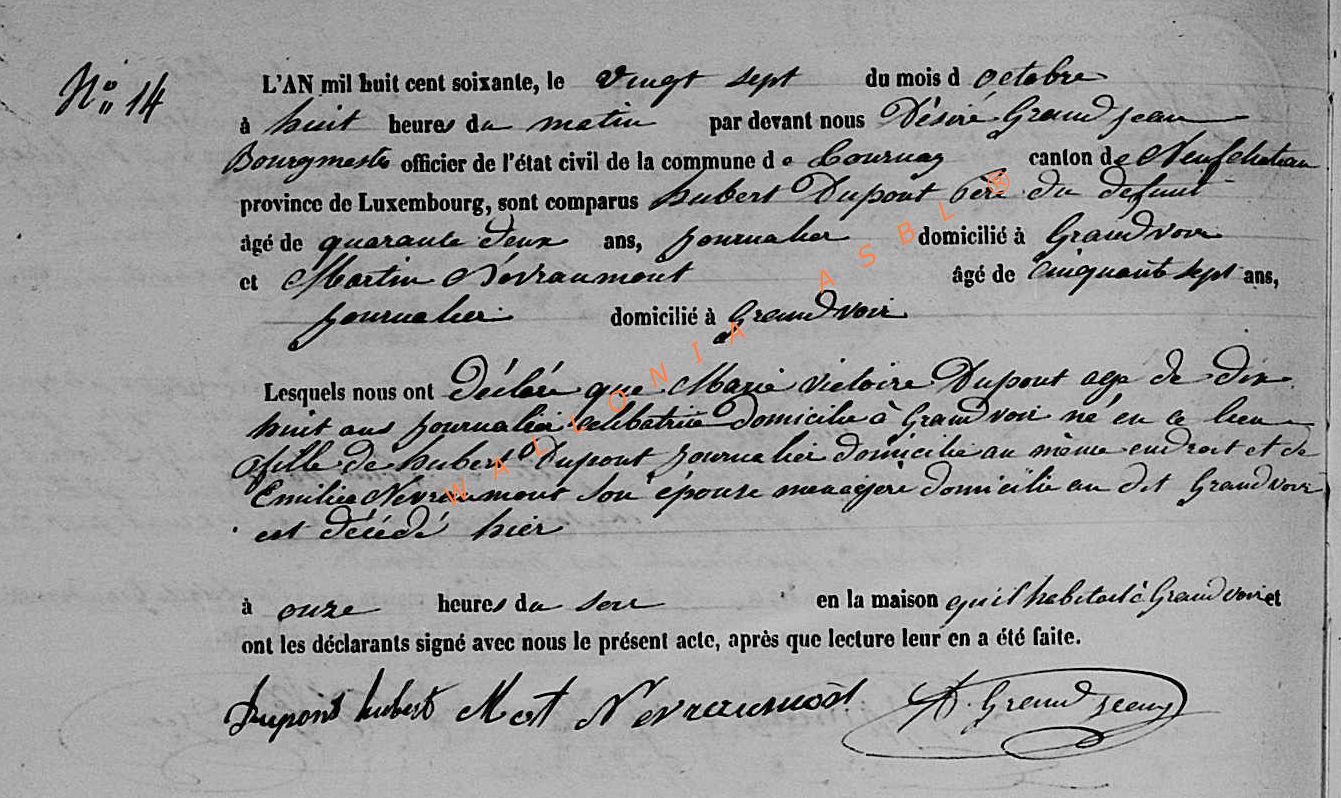 N° 14
L'AN mil huit cent soixante, le vingt sept du mois d octobre
à huit heures du matin par devant nous Désiré Grandjean
Bourgmestre officier de l'état civil de la commune d e Tournay canton de Neufchateau
province de Luxembourg, sont comparus hubert Dupont père du defunt
âgé de quarante deux ans, journalier domicilié à Grandvoir
et Martin Névraumont âgé de Cinquante sept ans,
journalier domicilié à Grandvoir
Lesquels nous ont déclaré que Marie Victoire Dupont age de dix
huit ans journalière celibatrice domicilie à Grandvoir né en ce lieu
fille de hubert Dupont journalier domicilie au même endroit et de
Emilie Nevraumont son épouse menagère domicilie au dit Grandvoir
est décédé hier
à onze heures du soir en la maison qu'il habitait à Grandvoir et
ont les déclarants signé avec nous le présent acte, après que lecture leur en a été faite.
Dupont hubert Mart Nevraumont D. Grandjean
WALLONIA ASBL ®